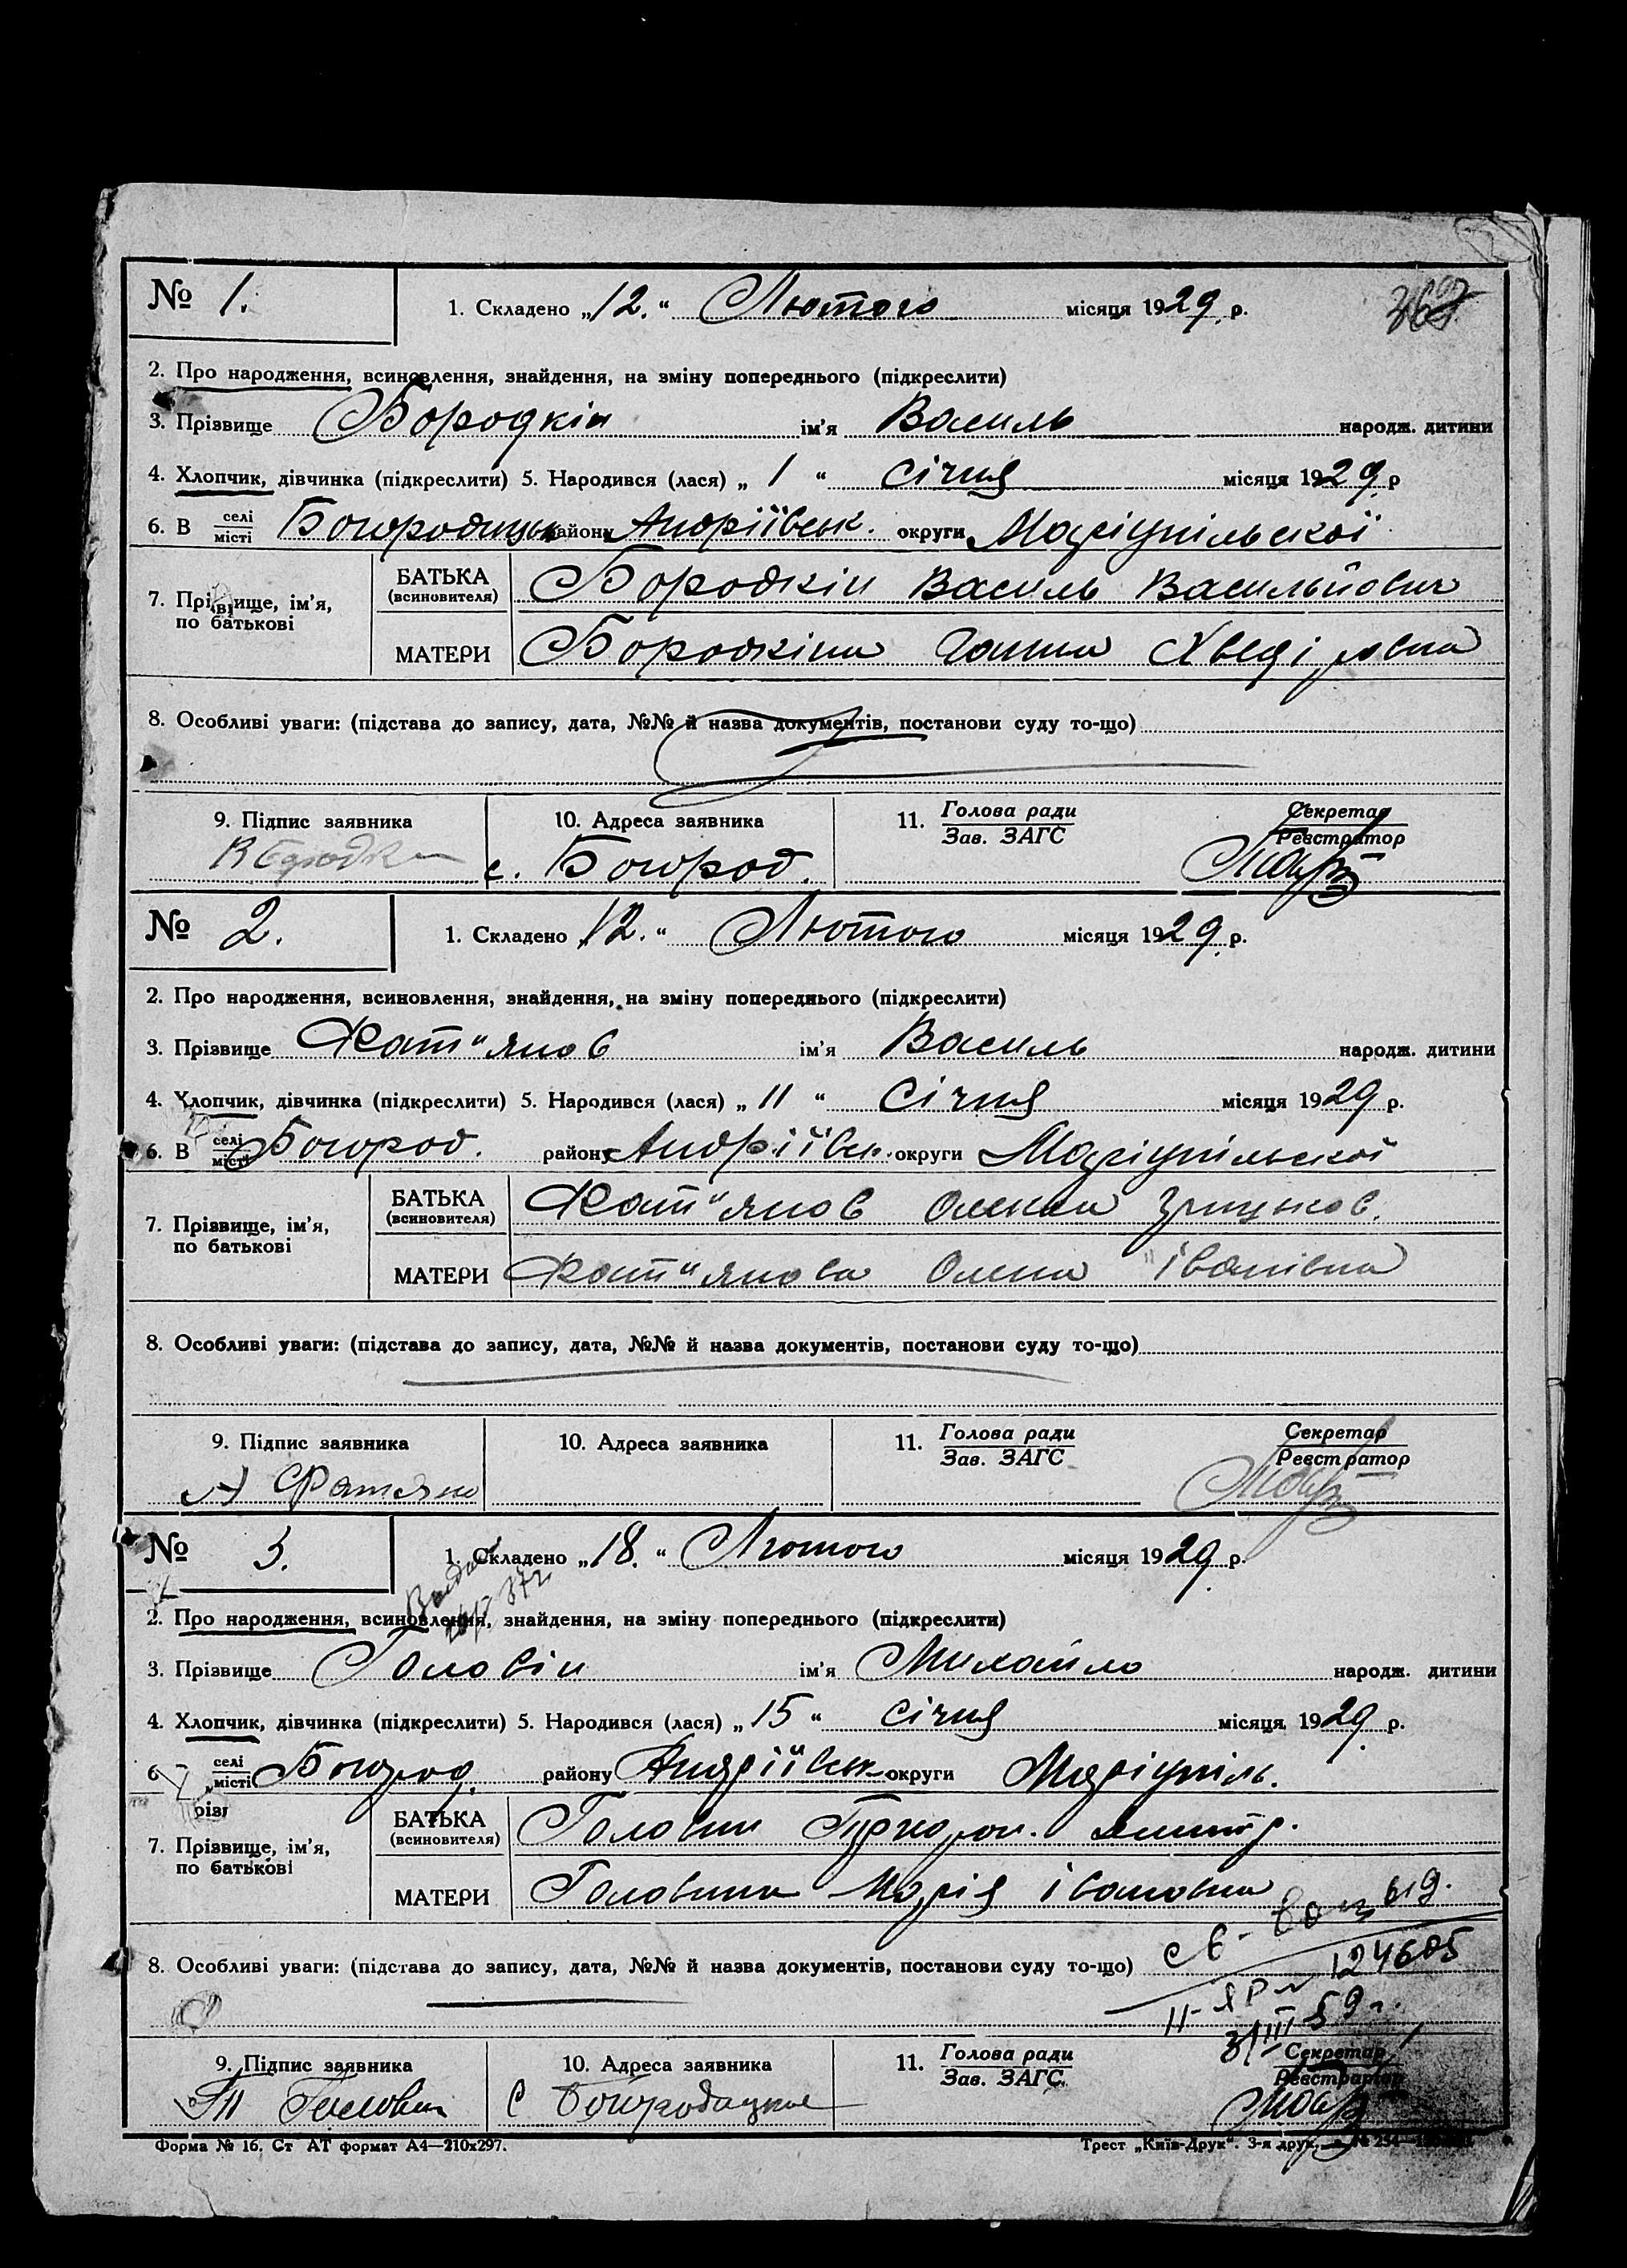 № 1. 1. Складено „12.“ Лютого місяця 1929. р.
2. Про народження, всиновлення, знайдення, на зміну попереднього (підкреслити)
3. Прізвище Бородкін ім'я Василь народж. дитини
4. Хлопчик, дівчинка (підкреслити) 5. Народився (лася) „ 1 “ січня місяця 1929. р
6. В селі місті Богородицьк району Андріївськ. округи Маріупільскої
7. Прізвище, ім'я, по батькові БАТЬКА (всиновителя) Бородкін Василь Васильйович
МАТЕРИ Бородкіна Ганна Хведіровна
8. Особливі уваги: (підстава до запису, дата, №№ й назва документів, постанови суду то-що)
9. Підпис заявника 10. Адреса заявника 11. Голова ради Зав. ЗАГС Секретар Реєстратор
с. Богород.
№ 2. 1. Складено „12.“ Лютого місяця 1929. р.
2. Про народження, всиновлення, знайдення, на зміну попереднього (підкреслити)
3. Прізвище Фат"янов ім'я Василь народж. дитини
4. Хлопчик, дівчинка (підкреслити) 5. Народився (лася) „ 11 “ січня місяця 1929 р.
6. В селі місті Богород. району Андріївськ. округи Маріупільскої
7. Прізвище, ім'я, по батькові БАТЬКА (всиновителя) Фат"янов Грицьков.
МАТЕРИ Фат"янова Олена Іванівна
8. Особливі уваги: (підстава до запису, дата, №№ й назва документів, постанови суду то-що)
9. Підпис заявника 10. Адреса заявника 11. Голова ради Зав. ЗАГС Секретар Реєстратор
№ 3. 1. Складено „18.“ Лютого місяця 1929. р.
2. Про народження, всиновлення, знайдення, на зміну попереднього (підкреслити)
3. Прізвище Головін ім'я Михайло народж. дитини
4. Хлопчик, дівчинка (підкреслити) 5. Народився (лася) „ 15 “ січня місяця 1929. р.
6 селі місті Богород. району Андріївськ округи Маріупіль.
7. Прізвище, ім'я, по батькові БАТЬКА (всиновителя) Головин
МАТЕРИ Головина Марія івановна
8. Особливі уваги: (підстава до запису, дата, №№ й назва документів, постанови суду то-що)
124605
9. Підпис заявника 10. Адреса заявника 11. Голова ради Зав. ЗАГС. Секретар Реєстратор
Головин с Богородицкое
Форма № 16. Ст АТ формат А4—210х297. Трест „Київ-Друк“. 3-я друк.